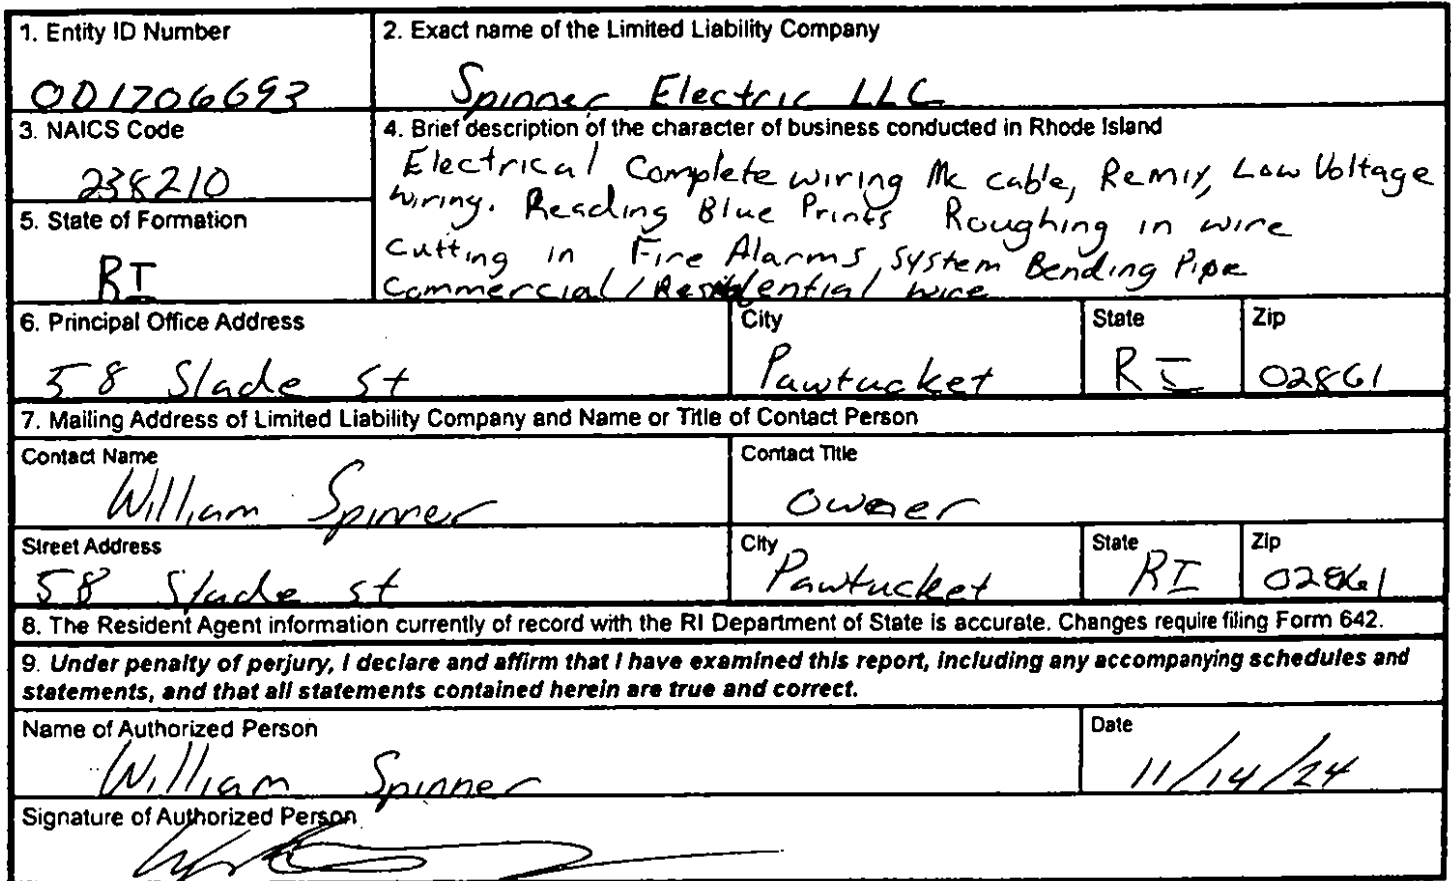 1. Entity ID Number
001706693
2. Exact name of the Limited Liability Company
Spinner Electric LLC
3. NAICS Code
238210
4. Brief description of the character of business conducted in Rhode Island
Electrical Complete wiring Mc cable, Remix, Low Voltage
wiring. Reading Blue Prints Roughing in wire
cutting in Fire Alarms, System Bending Pipe
Commercial / Residential wire
5. State of Formation
RI
6. Principal Office Address
58 Slade St
City
Pawtucket
State
RI
Zip
02861
7. Mailing Address of Limited Liability Company and Name or Title of Contact Person
Contact Name
William Spinner
Contact Title
Owner
Street Address
58 Slade st
City
Pawtucket
State
RI
Zip
02861
8. The Resident Agent information currently of record with the RI Department of State is accurate. Changes require filing Form 642.
9. Under penalty of perjury, I declare and affirm that I have examined this report, including any accompanying schedules and
statements, and that all statements contained herein are true and correct.
Name of Authorized Person
William Spinner
Date
11/14/24
Signature of Authorized Person